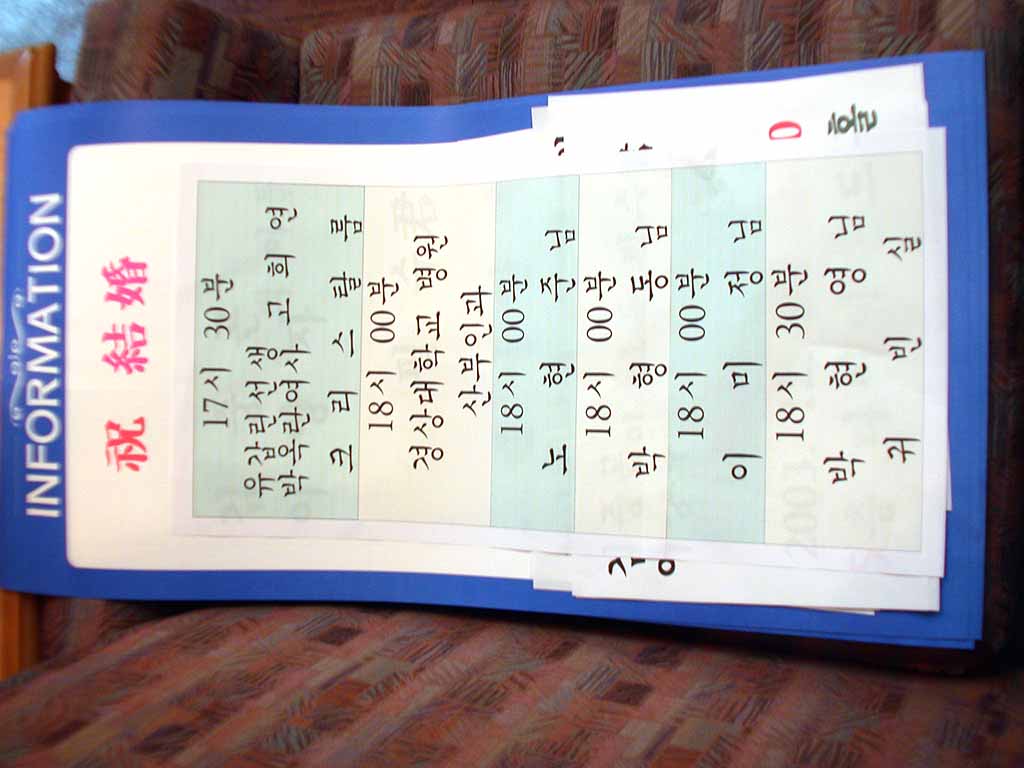 INFORMATION
祝 結 婚
17시 30분
유갑린선생
박옥란여사 고 희 연
크 리 스 탈 룸
18시 00분
경상대학교 병원
산부인과
18시 00분
노 현 주 님
18시 00분
박 형 동 님
18시 00분
이 미 정 님
18시 30분
박 현 영 님
귀 빈 실